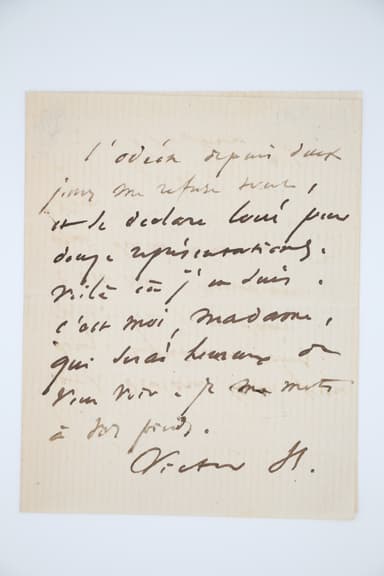 l'odéon depuis deux
jours me refuse tout,
et se déclare loué pour
douze représentations.
voilà où j'en suis.
c'est moi, madame,
qui serai heureux de
vous voir. je me mets
à vos pieds.
Victor H.